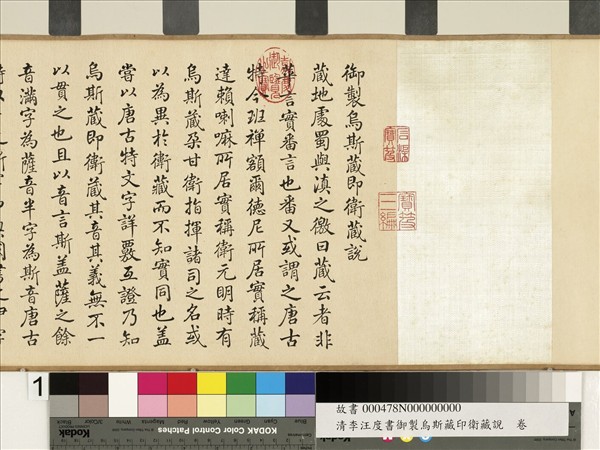 御製烏斯藏即衛藏說
藏地處蜀與滇之徼曰藏云者非
華言實番言也番又或謂之唐古
特今班禪額爾德尼所居實稱藏
達賴喇嘛所居實稱衛元明時有
烏斯藏朶甘衛指揮諸司之名或
以為異於衛藏而不知實同也蓋
嘗以唐古特文字詳覈互證乃知
烏斯藏即衛藏其音其義無不一
以貫之也且以音言斯盖薩之餘
音滿字為薩音半字為斯音唐古
石渠
寶笈
寶笈
三編
1
Blue
Cyan
Green
Yellow
Red
Magenta
White
3/Color
Black
Kodak
KODAK Color Control Patches
故書 000478N000000000
清李汪度書御製烏斯藏印衛藏說 卷